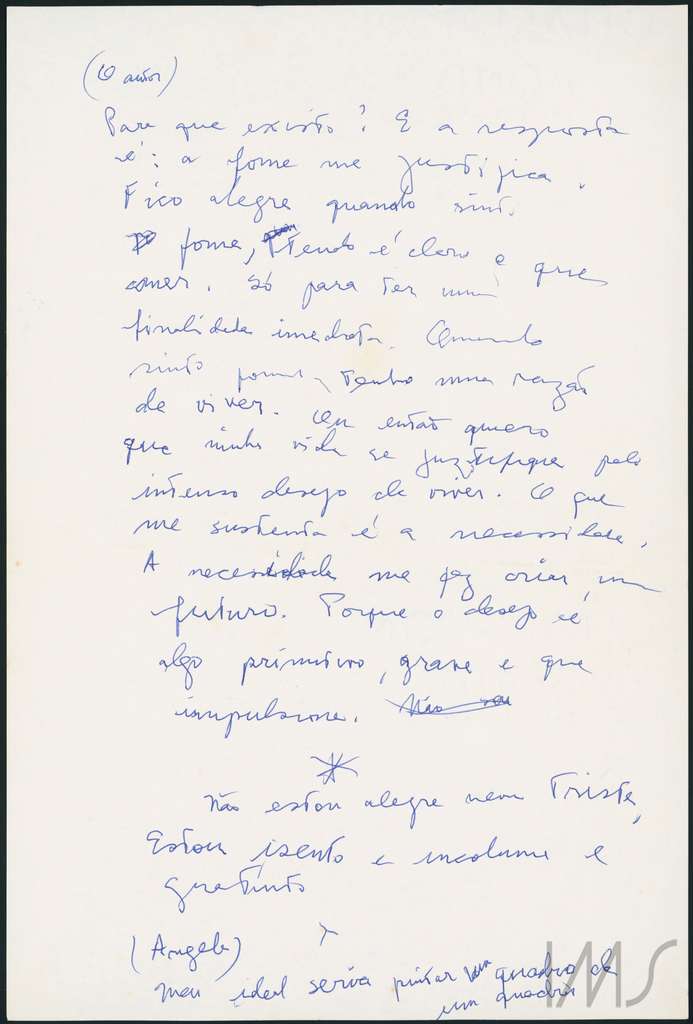 (O autor)
Para que existo? E a resposta
é: a fome me justifica.
Fico alegre quando sinto
fome, Tendo é claro o que
comer. Só para ter uma
finalidade imediata. Quando
sinto fome, tenho uma razão
de viver. Ou então quero
que minha vida se justifique pelo
intenso desejo de viver. O que
me sustenta é a necessidade.
A necessidade me faz criar um
futuro. Porque o desejo é
algo primitivo, grave e que
impulsiona. Não sou
*
Não estou alegre nem Triste,
Estou isento e incolume e
gratuito
(Angela)
meu ideal seria pintar um quadro de
um quadro
IMS